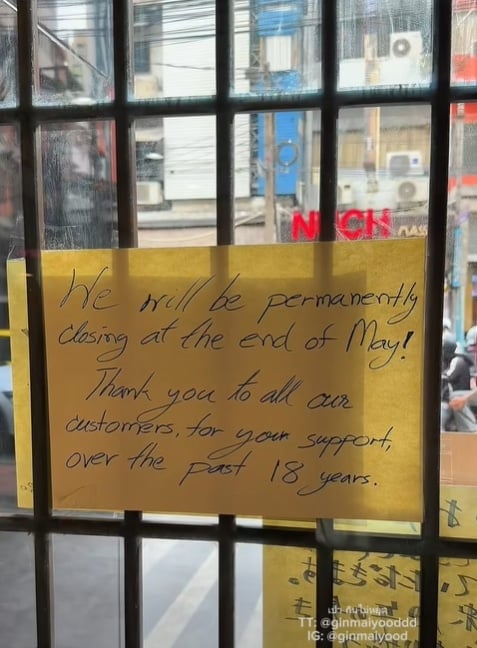 We will be permanently
closing at the end of May!
Thank you to all our
customers, for your support,
over the past 18 years.
เป๋า กินไม่หยุด
TT: @ginmaiyooddd
IG: @ginmaiyood